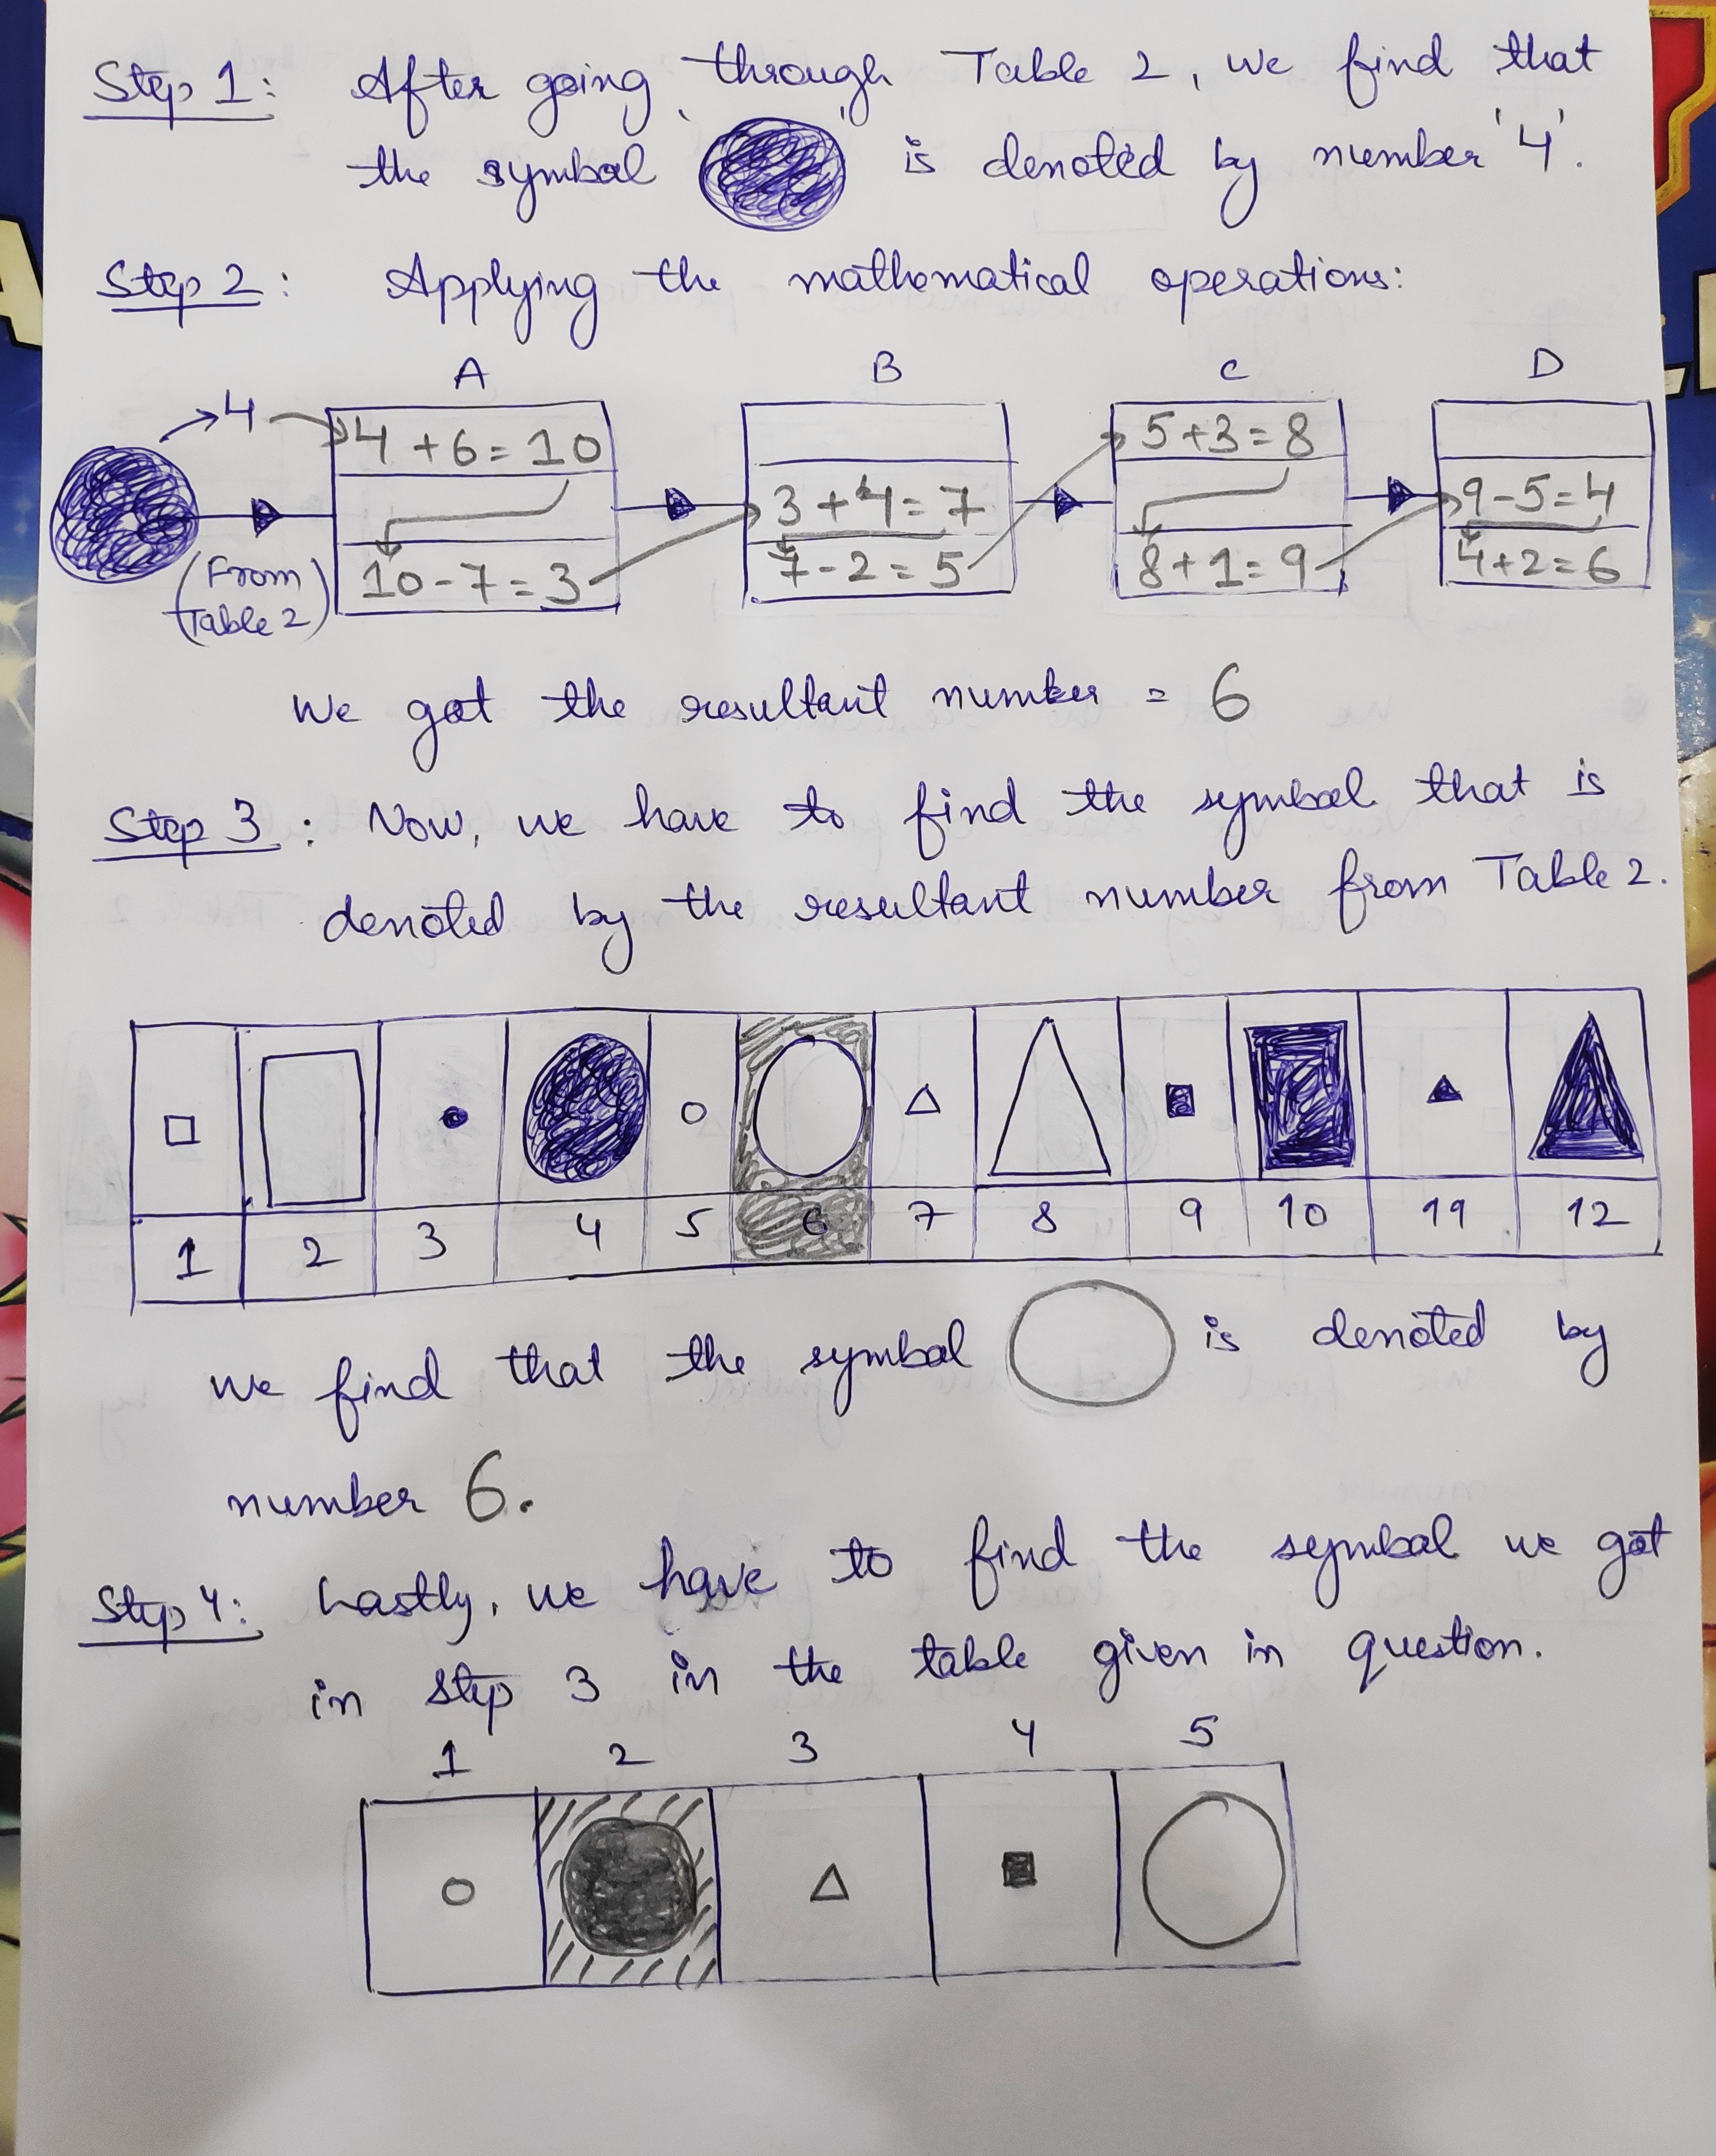 Step 1: After going through Table 2, we find that
the symbol ' ' is denoted by number '4'.
Step 2: Applying the mathematical operations:
A B C D
4
4 + 6 = 10
10 - 7 = 3
3 + 4 = 7
7 - 2 = 5
5 + 3 = 8
8 + 1 = 9
9 - 5 = 4
4 + 2 = 6
(From
Table 2)
We got the resultant number = 6
Step 3: Now, we have to find the symbol that is
denoted by the resultant number from Table 2.
1 2 3 4 5 6 7 8 9 10 11 12
we find that the symbol is denoted by
number 6.
Step 4: Lastly, we have to find the symbol we got
in step 3 in the table given in question.
1 2 3 4 5